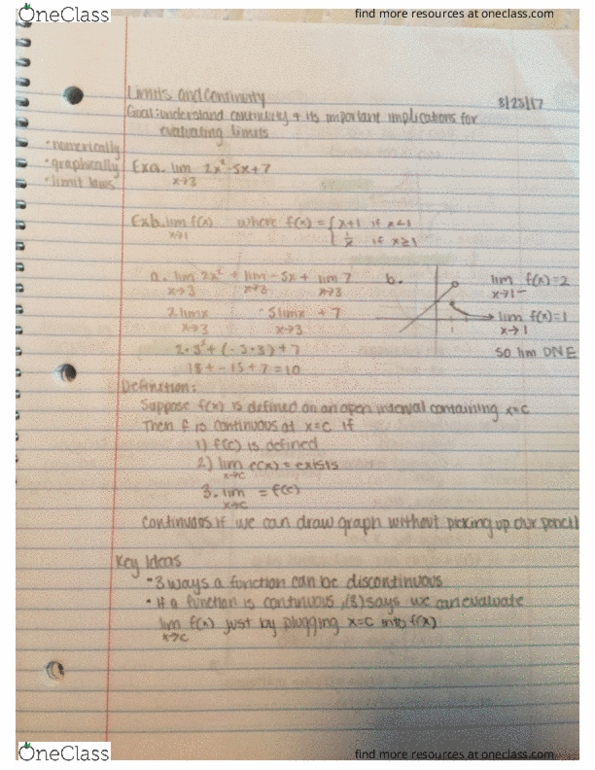 OneClass
find more resources at oneclass.com
Limits and Continuity
8/23/17
Goal: understand continuity + its important implications for
evaluating limits
• numerically
• graphically
• limit laws
Ex a. lim 2x² - 5x + 7
x→3
Ex b. lim f(x) where f(x) = { x+1 if x<1
x→1 { 1/x if x≥1
a. lim 2x² + lim - 5x + lim 7
x→3 x→3 x→3
b.
lim f(x) = 2
x→1−
2 lim x - 5 lim x + 7
x→3 x→3
lim f(x) = 1
x→1
2 • 3² + (-5 • 3) + 7
so lim DNE
18 + -15 + 7 = 10
Definition:
Suppose f(x) is defined on an open interval containing x=c
Then f is continuous at x=c if
1) f(c) is defined
2) lim f(x) = exists
x→c
3. lim = f(c)
x→c
continuous if we can draw graph without picking up our pencil
Key Ideas
• 3 ways a function can be discontinuous
• If a function is continuous, (3) says we can evaluate
lim f(x) just by plugging x=c into f(x)
x→c
OneClass
find more resources at oneclass.com